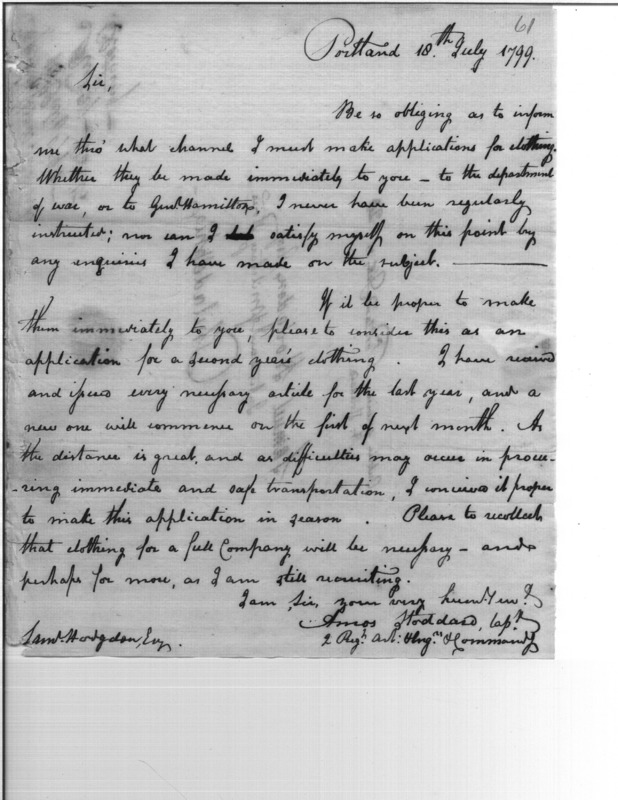 61
Portland 18th July 1799.
Sir,
Be so obliging as to inform
me thro' what channel I must make applications for clothing.
Whether they be made immediately to you - to the department
of war, or to Genl Hamilton, I never have been regularly
instructed; nor can I satisfy myself on this point by
any enquiries I have made on the subject.
If it be proper to make
them immediately to you, please to consider this as an
application for a second year's clothing. I have received
and issued every necessary article for the last year, and a
new one will commence on the first of next month. As
the distance is great, and as difficulties may occur in procu-
-ring immediate and safe transportation, I conceived it proper
to make this application in season. Please to recollect
that clothing for a full Company will be necessary - and
perhaps for more, as I am still recruiting.
I am, Sir, your very humbl servt
Amos Stoddard, Capt
Saml Hodgdon, Esq.
2 Regt Art: & Engrs & Commandg